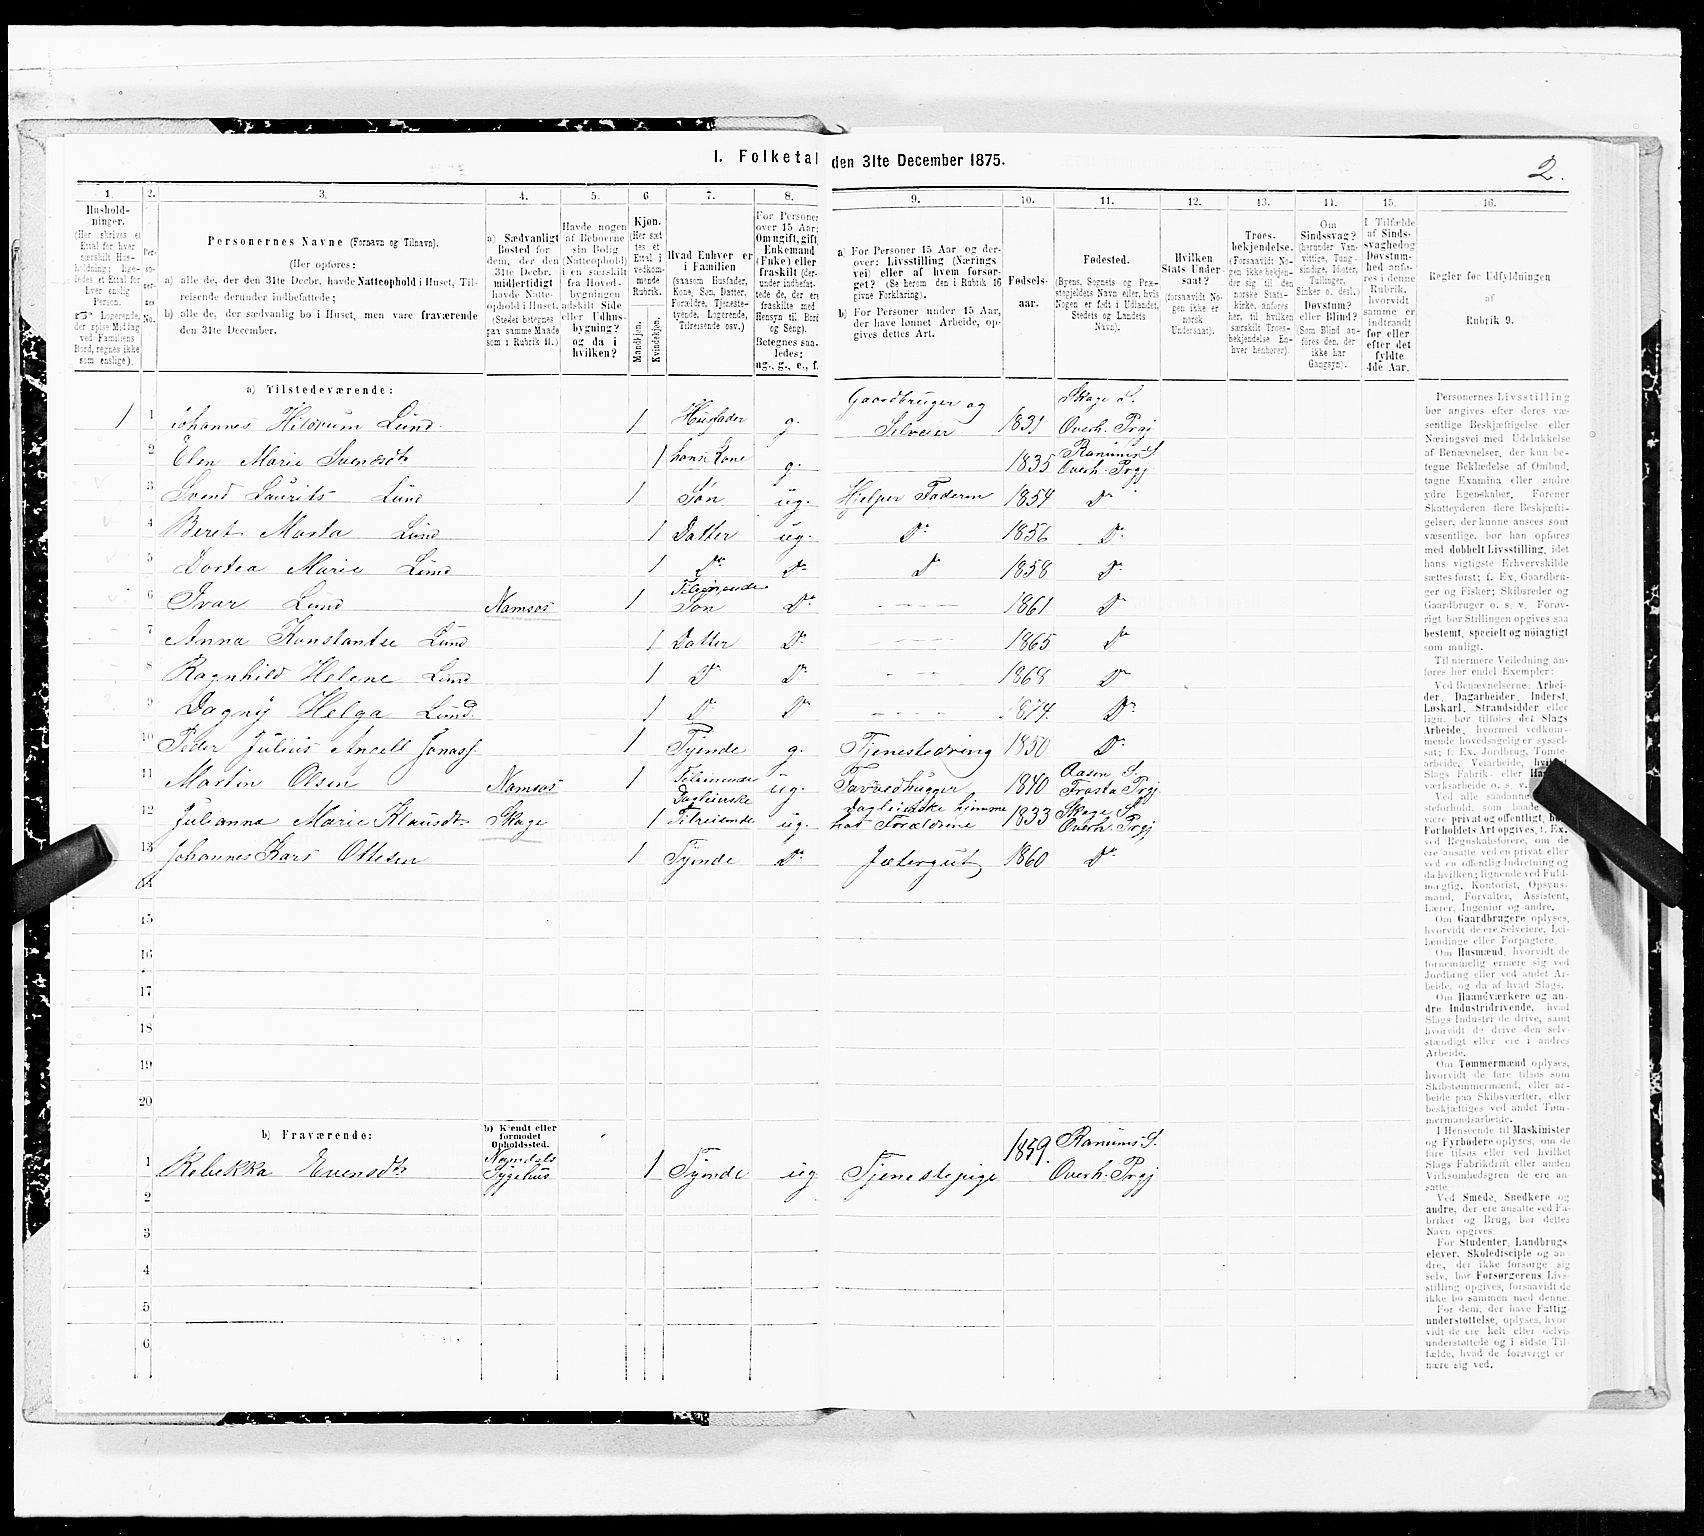 I. Folketal den 31te December 1875.
2.
1. 2. 3. 4. 5. 6. 7. 8. 9. 10. 11. 12. 13. 14. 15. 16.
Hushold-
ninger.
(Her skrives et
Ettal for hver
særskilt Hus-
holdning; lige-
ledes et Ettal for
hver enslig
Person.
Logerende,
der spise Middag
ved Familiens
Bord, regnes ikke
som enslige).
Per-
so-
ner-
nes
No.
Personernes Navne (Fornavn og Tilnavn).
(Her opføres:
a) alle de, der den 31te Decbr. havde Natteophold i Huset, Til-
reisende derunder indbefattede;
b) alle de, der sædvanlig bo i Huset, men vare fraværende
den 31te December.
a) Sædvanligt
Bosted for
dem, der den
31te Decbr.
midlertidigt
havde Natte-
ophold i Huset.
(Stedet betegnes
paa samme Maade
som i Rubrik 11.)
Havde nogen
af Beboerne
sin Bolig
(Natteophold)
i en særskilt
fra Hoved-
bygningen
adskilt Side
eller Udhus-
bygning?
og da i
hvilken?
Kjøn.
(Her sæt-
tes et
Ettal i
vedkom-
mende
Rubrik.
Mandkjøn.
Kvindekjøn.
Hvad Enhver er
i Familien
(saasom Husfader,
Kone, Søn, Datter,
Forældre, Tjeneste-
tyende, Logerende,
Tilreisende osv.)
For Personer
over 15 Aar:
Om ugift, gift,
Enkemand
(Enke) eller
fraskilt (der-
under indbefat-
tede de, der ere
fraskilte med
Hensyn til Bord
og Seng).
Betegnes saa-
ledes:
ug., g., e., f.
a) For Personer 15 Aar og der-
over: Livsstilling (Nærings-
vei) eller af hvem forsør-
get? (Se herom den i Rubrik 16
givne Forklaring).
b) For Personer under 15 Aar,
der have lønnet Arbeide, op-
gives dettes Art.
Fødsels-
aar.
Fødested.
(Byens, Sognets og Præ-
stegjeldets Navn eller, hvis
Nogen er født i Udlandet,
Stedets og Landets
Navn).
Hvilken
Stats Under-
saat?
(forsaavidt No-
gen ikke er
norsk
Undersaat).
Troes-
bekjendelse.
(Forsaavidt No-
gen ikke bekjen-
der sig til den
norske Stats-
kirke, anføres
her, til hvilken
særskilt Troes-
bekjendelse En-
hver henhører).
Om
Sindssvag?
(herunder Van-
vittige, Tung-
sindige, Idioter,
Tullinger,
Sinker o. desl.)
Døvstum?
eller Blind?
(Som Blind an-
føres den, der
ikke har
Gangsyn).
I Tilfælde
af Sinds-
svaghed og
Døvstum-
hed anfø-
res i denne
Rubrik,
hvorvidt
samme er
indtraadt
før eller
efter det
fyldte
4de Aar.
Regler for Udfyldningen
af
Rubrik 9.
a) Tilstedeværende:
1 1 Johannes Hildrum Lund. 1 Husfader g. Gaardbruger og Selveier 1831 Skage S. Overh. Prgj
2 Elen Marie Svendsdtr 1 hans Kone g. 1835 Ranums S. Overh. Prgj
3 Svend Laurits Lund 1 Søn ug. Hjelper Faderen 1854 Do
4 Beret Marta Lund 1 Datter ug. Do 1856 Do
5 Dortea Marie Lund 1 Do Do Do 1858 Do
6 Ivar Lund Namsos 1 Tilreisende Søn Do 1861 Do
7 Anna Konstantse Lund 1 Datter Do 1865 Do
8 Ragnhild Helene Lund 1 Do Do 1868 Do
9 Dagny Helga Lund. 1 Do Do 1874. Do
10 Peder Julius Ancell Jonass. 1 Tyende g. Tjenestedreng 1850 Do
11 Martin Olsen Namsos 1 Tilreisende ug. 1840 Aasen S. Frosta Prgj
12 Julianna Marie Klausdtr Skage 1 Tilreisende ug. hos Forældrene 1833 Skage S. Overh. Prgj
13 Johannes Kars Ottesen 1 Tyende Do Jætergut 1860 Do
14
15
16
17
18
19
20
b) Fraværende:
b) Kjendt eller
formodet
Opholdssted.
1 Rebekka Evensdtr Namdals Sygehus 1 Tyende ug Tjenestepige 1839. Ranums S. Overh. Prgj
2
3
4
5
6
Personernes Livsstilling
bør angives efter deres væ-
sentlige Beskjæftigelse eller
Næringsvei med Udelukkelse
af Benævnelser, der kun be-
tegne Beklædelse af Ombud,
tagne Examina eller andre
ydre Egenskaber. Forener
Skatteyderen flere Beskjæfti-
gelser, der kunne ansees som
væsentlige, bør han opføres
med dobbelt Livsstilling, idet
hans vigtigste Erhvervskilde
sættes først; f. Ex. Gaardbru-
ger og Fisker; Skibsreder og
Gaardbruger o. s. v. Forøv-
rigt bør Stillingen opgives saa
bestemt, specielt og nøiagtigt
som muligt.
Til nærmere Veiledning an-
føres her endel Exempler:
Ved Benævnelserne: Arbei-
der, Dagarbeider, Inderst,
Løskarl, Strandsidder eller
lign. bør tilføies det Slags
Arbeide, hvormed vedkom-
mende hovedsagelig er syssel-
sat; f. Ex. Jordbrug, Tomte-
arbeide, Veiarbeide,
Slags Fabrik- eller
værksarbeide o. s. v.
Ved alle saadanne
steforhold, som baade
være privat og offentlig, bør
Forholdets Art opgives, f. Ex.
ved Regnskabsførere, om de
ere ansatte ved en privat eller
ved en offentlig Indretning og
da hvilken; lignende ved Fuld-
mægtig, Kontorist, Opsyns-
mand, Forvalter, Assistent,
Lærer, Ingeniør og andre.
Om Gaardbrugere oplyses,
hvorvidt de ere Selveiere, Lei-
lændinge eller Forpagtere.
Om Husmænd, hvorvidt de
fornemmelig ernære sig ved
Jordbrug eller ved andet Ar-
beide, og da af hvad Slags.
Om Haandværkere og an-
dre Industridrivende, hvad
Slags Industri de drive, samt
hvorvidt de drive den selv-
stændigt eller ere i andres
Arbeide.
Om Tømmermænd oplyses,
hvorvidt de fare tilsøs som
Skibstømmermænd, eller ar-
beide paa Skibsværfter, eller
beskjæftiges ved andet Tøm-
mermandsarbeide.
I Henseende til Maskinister
og Fyrbødere oplyses, om de
fare tilsøs eller ved hvilket
Slags Fabrikdrift eller anden
Virksomhedsgren de ere an-
satte.
Ved Smede, Snedkere og
andre, der ere ansatte ved Fa-
briker og Brug, bør dettes
Navn opgives.
For Studenter, Landbrugs-
elever, Skoledisciple og an-
dre, der ikke forsørge sig
selv, bør Forsørgerens Livs-
stilling opgives, forsaavidt de
ikke bo sammen med denne.
For dem, der have Fattig-
understøttelse, oplyses, hvor-
vidt de ere helt eller delvis
understøttede og i sidste Til-
fælde, hvad de forøvrigt er-
nære sig ved.